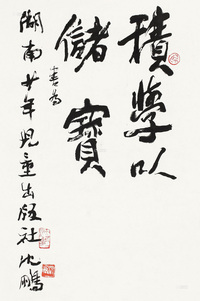 積學以
儲寶
書為
湖南少年兒童出版社沈鵬